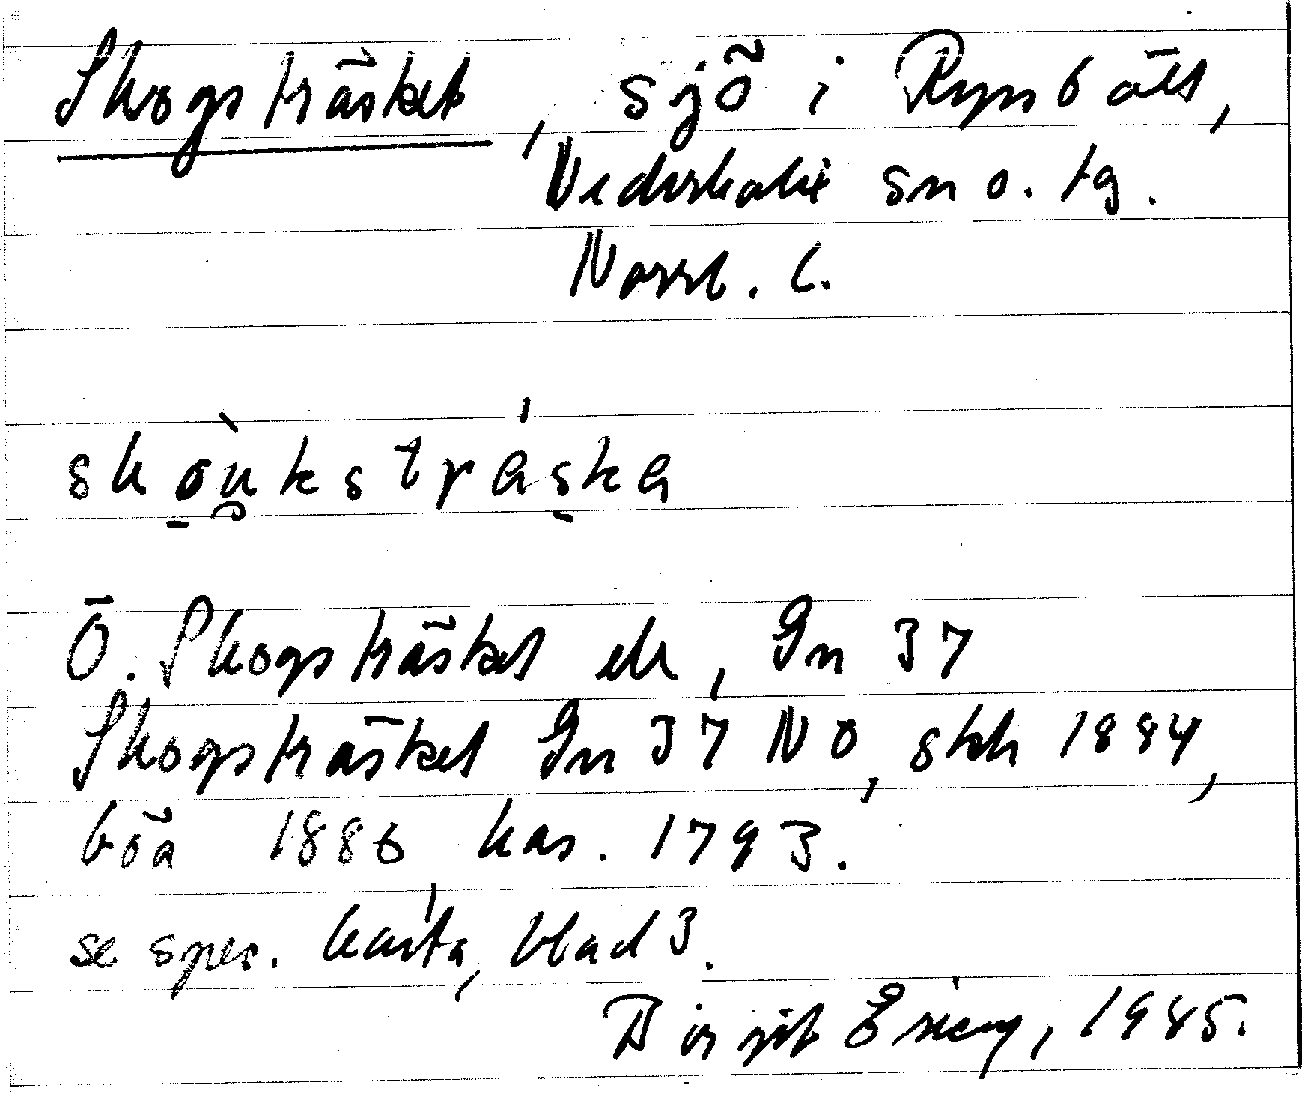 Skogsträsket, sjö i Rynbäck,
Nederkalix sn o. tg.
Norrb. l.
skou̯kstráska
Ö. Skogsträsket ek, Gn 37
Skogsträsket Gn 37 NO, skk 1884,
böa 1886 kas. 1793.
se spec. karta, blad 3.
Birgit Ering, 1985.